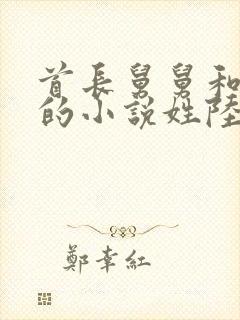 首長舅舅和
的小說姓陸
鄭幸紅